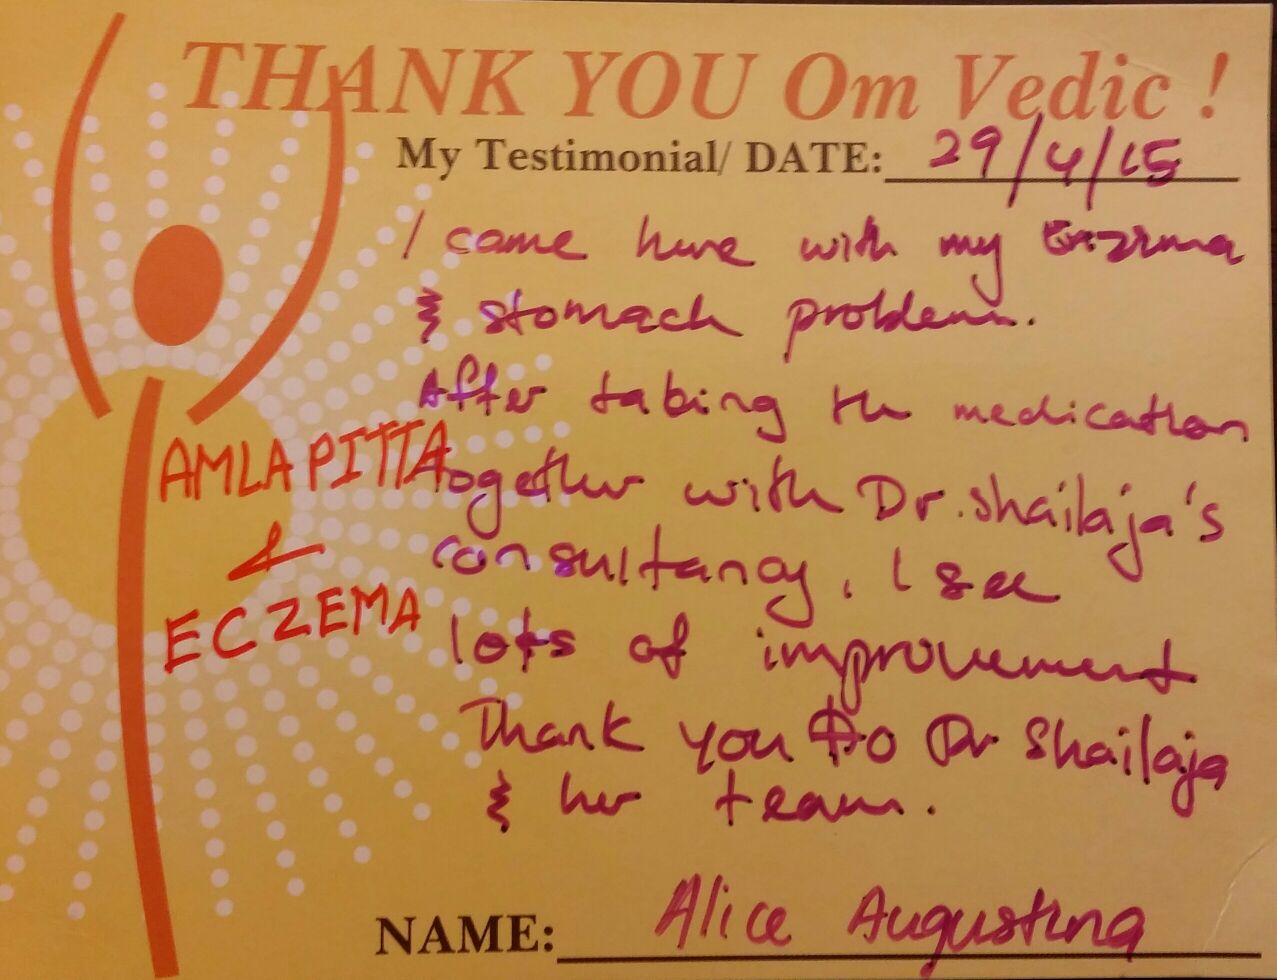 THANK YOU Om Vedic !
My Testimonial/ DATE: 29/4/15
I came here with my
& stomach problem.
After taking the medication
together with Dr. Shailaja's
consultancy, I see
lots of improvement
Thank you to Dr Shailaja
& her team.
AMLA PITTA
&
ECZEMA
NAME: Alice Augustina